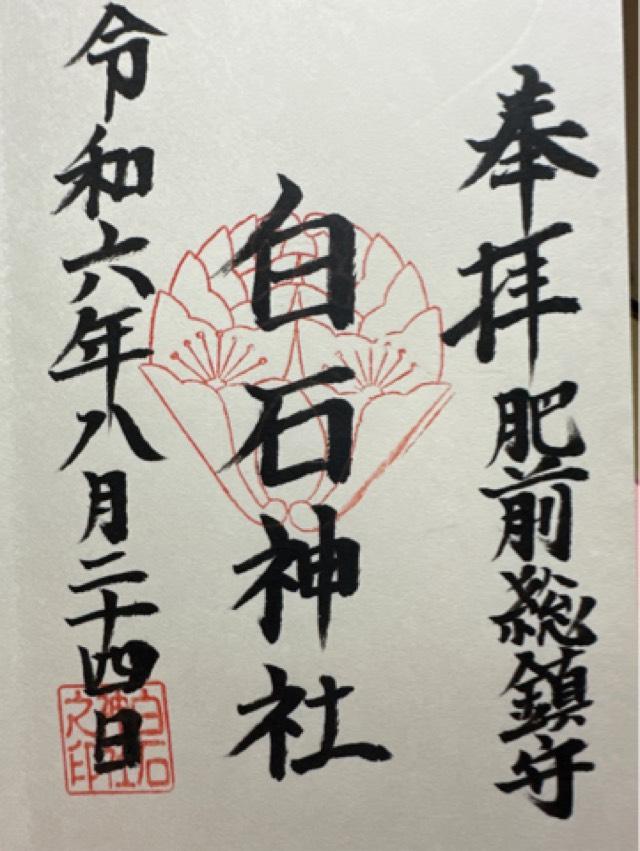 奉拝
肥前総鎮守
白石神社
令和六年八月二十四日
白石神社之印